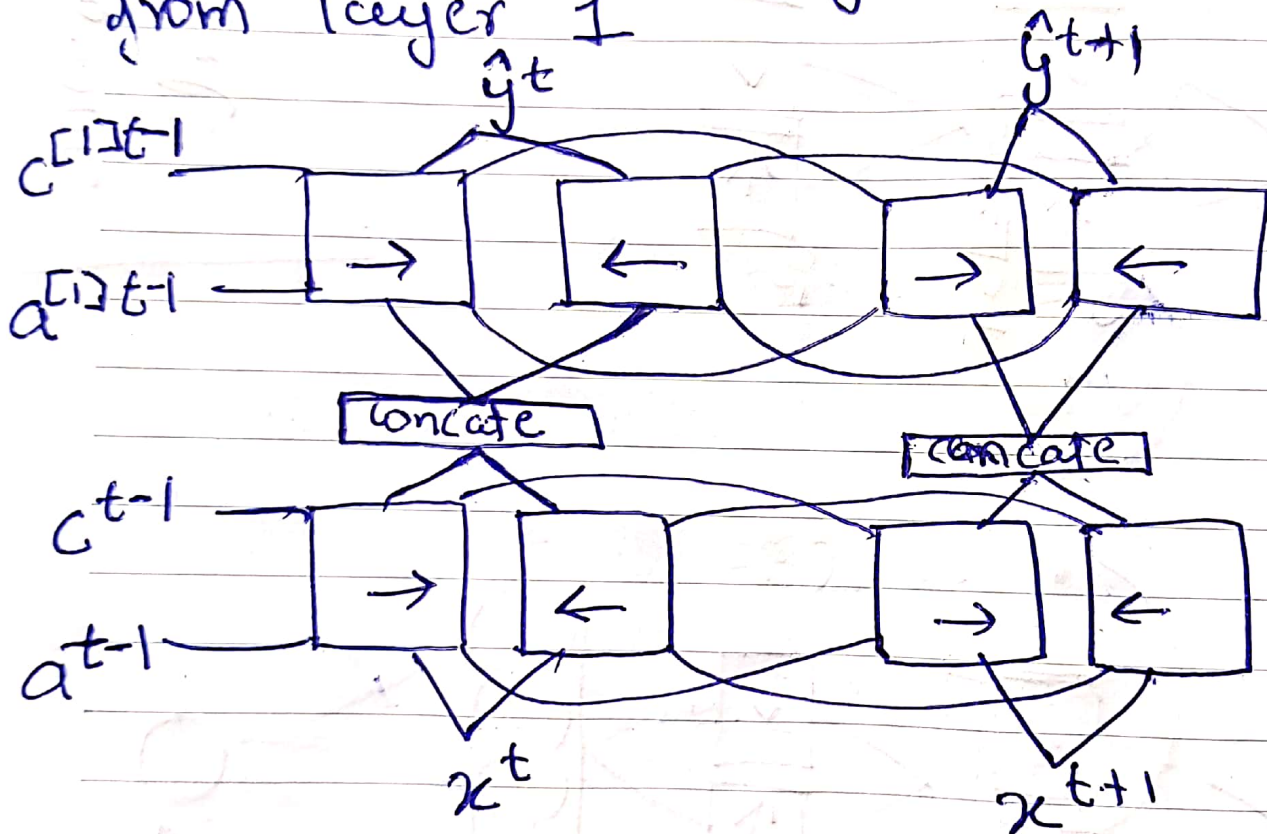 from layer 1
ŷ^t
ŷ^t+1
c^[1]t-1
a^[1]t-1
concate
concate
c^t-1
a^t-1
x^t
x^t+1